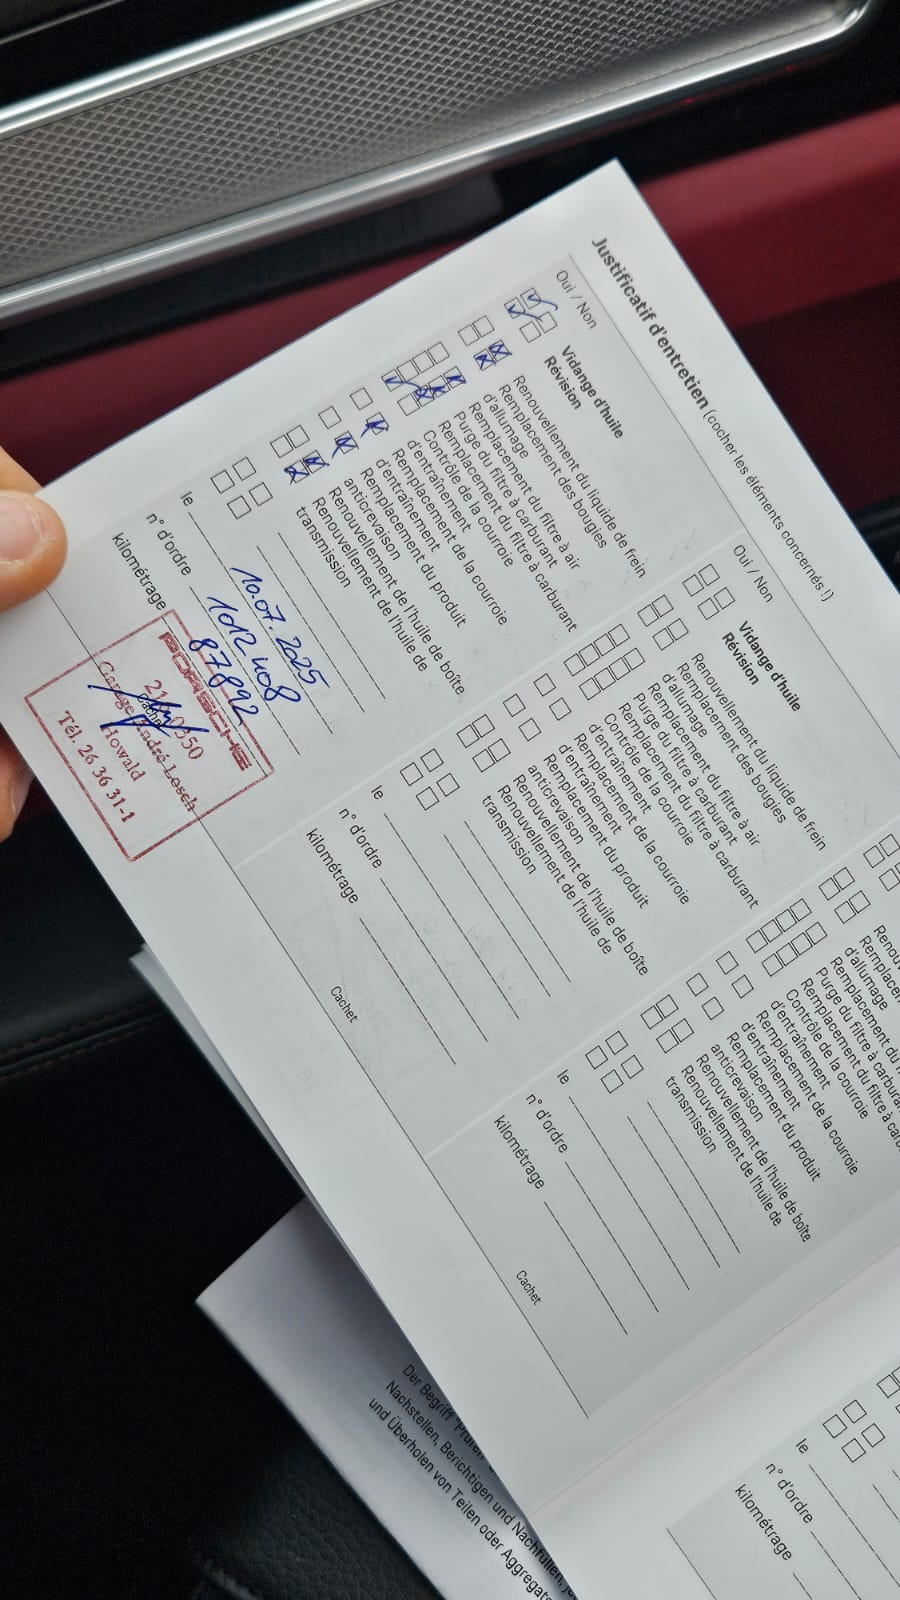 Justificatif d'entretien (cocher les éléments concernés !)
Oui / Non
Vidange d'huile
Révision
Renouvellement du liquide de frein
Remplacement des bougies
d'allumage
Remplacement du filtre à air
Purge du filtre à carburant
Remplacement du filtre à carburant
Contrôle de la courroie
d'entraînement
Remplacement de la courroie
d'entraînement
Remplacement du produit
anticrevaison
Renouvellement de l'huile de boîte
Renouvellement de l'huile de
transmission
le 10.07.2025
n° d'ordre 1012408
kilométrage 87892
Cachet
PORSCHE
Garage André Losch
Howald
Tél. 26 36 31-1
Oui / Non
Vidange d'huile
Révision
Renouvellement du liquide de frein
Remplacement des bougies
d'allumage
Remplacement du filtre à air
Purge du filtre à carburant
Remplacement du filtre à carburant
Contrôle de la courroie
d'entraînement
Remplacement de la courroie
d'entraînement
Remplacement du produit
anticrevaison
Renouvellement de l'huile de boîte
Renouvellement de l'huile de
transmission
le
n° d'ordre
kilométrage
Cachet
d'allumage
Remplacement du
Purge du filtre à
Remplacement du filtre à
Contrôle de la courroie
d'entraînement
Remplacement de la courroie
d'entraînement
Remplacement du produit
anticrevaison
Renouvellement de l'huile de boîte
Renouvellement de l'huile de
transmission
le
n° d'ordre
kilométrage
Cachet
le
n° d'ordre
kilométrage
Der Begriff
Nachstellen, Berichtigen und Nachfüllen,
und Überholen von Teilen oder